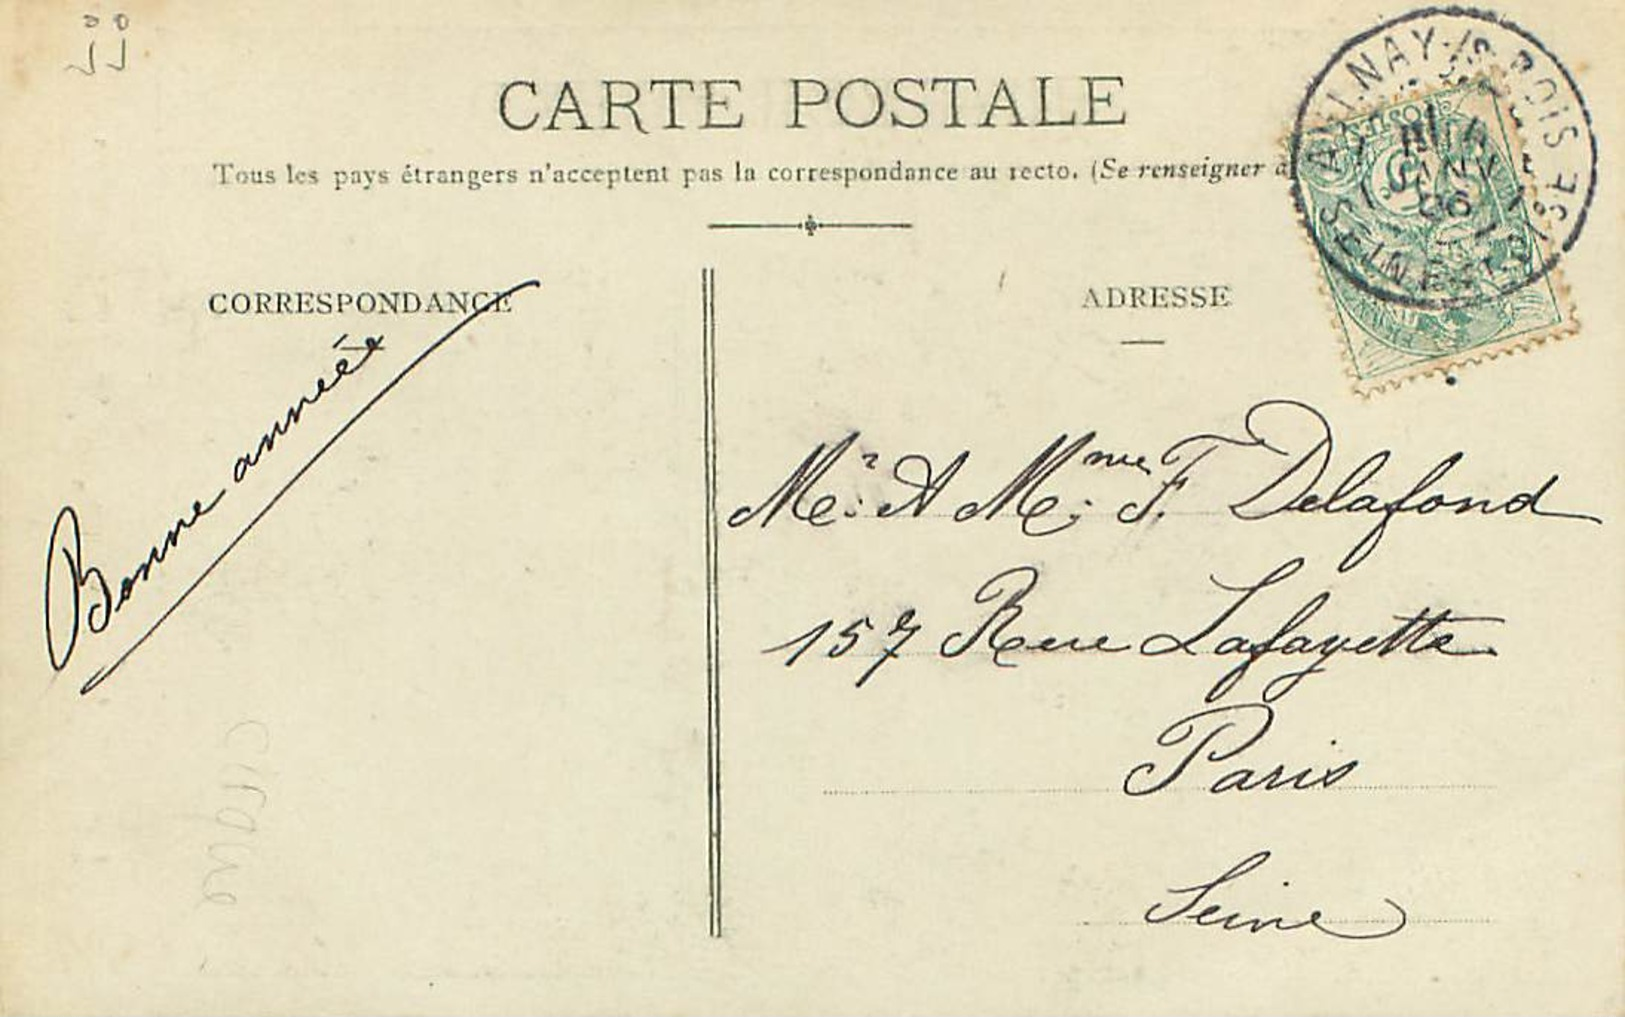 CARTE POSTALE
Tous les pays étrangers n'acceptent pas la correspondance au recto. (Se renseigner à
CORRESPONDANCE
ADRESSE
Bonne année
Mr. & Mme. F. Delafond
157 Rue Lafayette
Paris
Seine
AULNAY-/S-BOIS
SEINE-ET-OISE
JANV
06